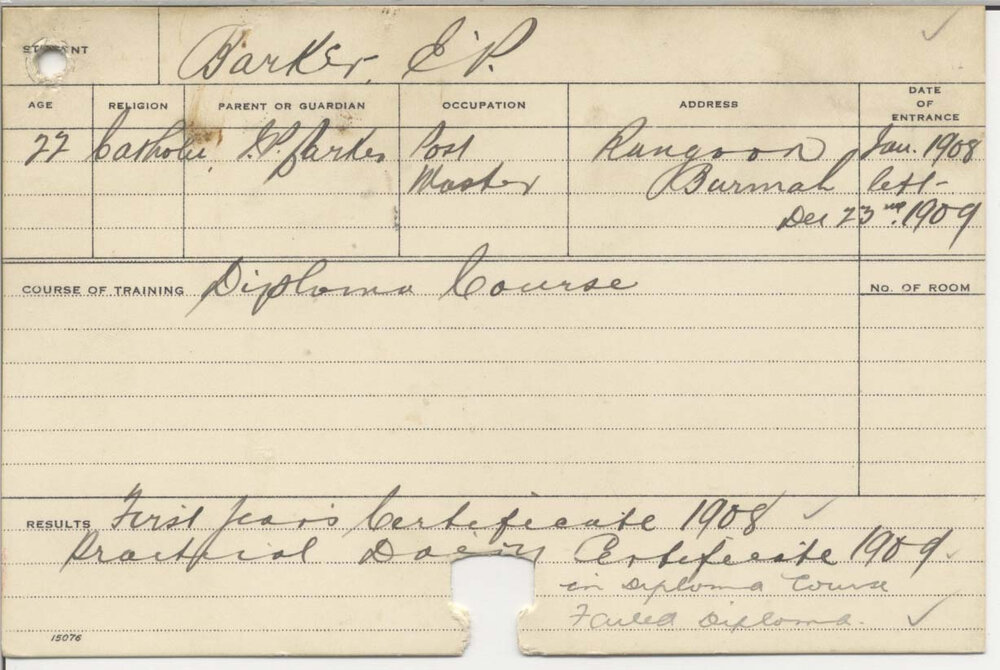 STUDENT Barker, E.P.
AGE RELIGION PARENT OR GUARDIAN OCCUPATION ADDRESS DATE OF ENTRANCE
22 Catholic J.P. Barker Post Rangoon Jan. 1908
Master Burmah left
Dec 23rd. 1909
COURSE OF TRAINING Diploma Course No. OF ROOM
RESULTS First Years Certificate 1908
Practical Dairy Certificate 1909
in Diploma Course
Failed Diploma.
15076